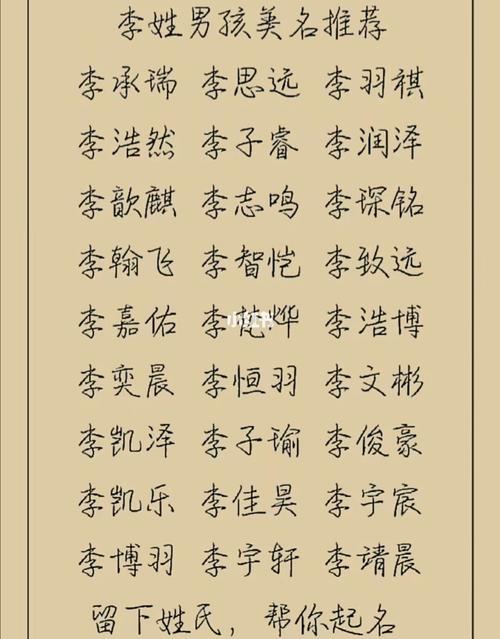 李姓男孩美名推荐
李承瑞 李思远 李羽祺
李浩然 李子睿 李润泽
李歆麒 李志鸣 李琛铭
李翰飞 李智恺 李致远
李嘉佑 李 烨 李浩博
李奕晨 李恒羽 李文彬
李凯泽 李子瑜 李俊豪
李凯乐 李佳昊 李宇宸
李博羽 李宇轩 李靖晨
留下姓氏，帮你起名